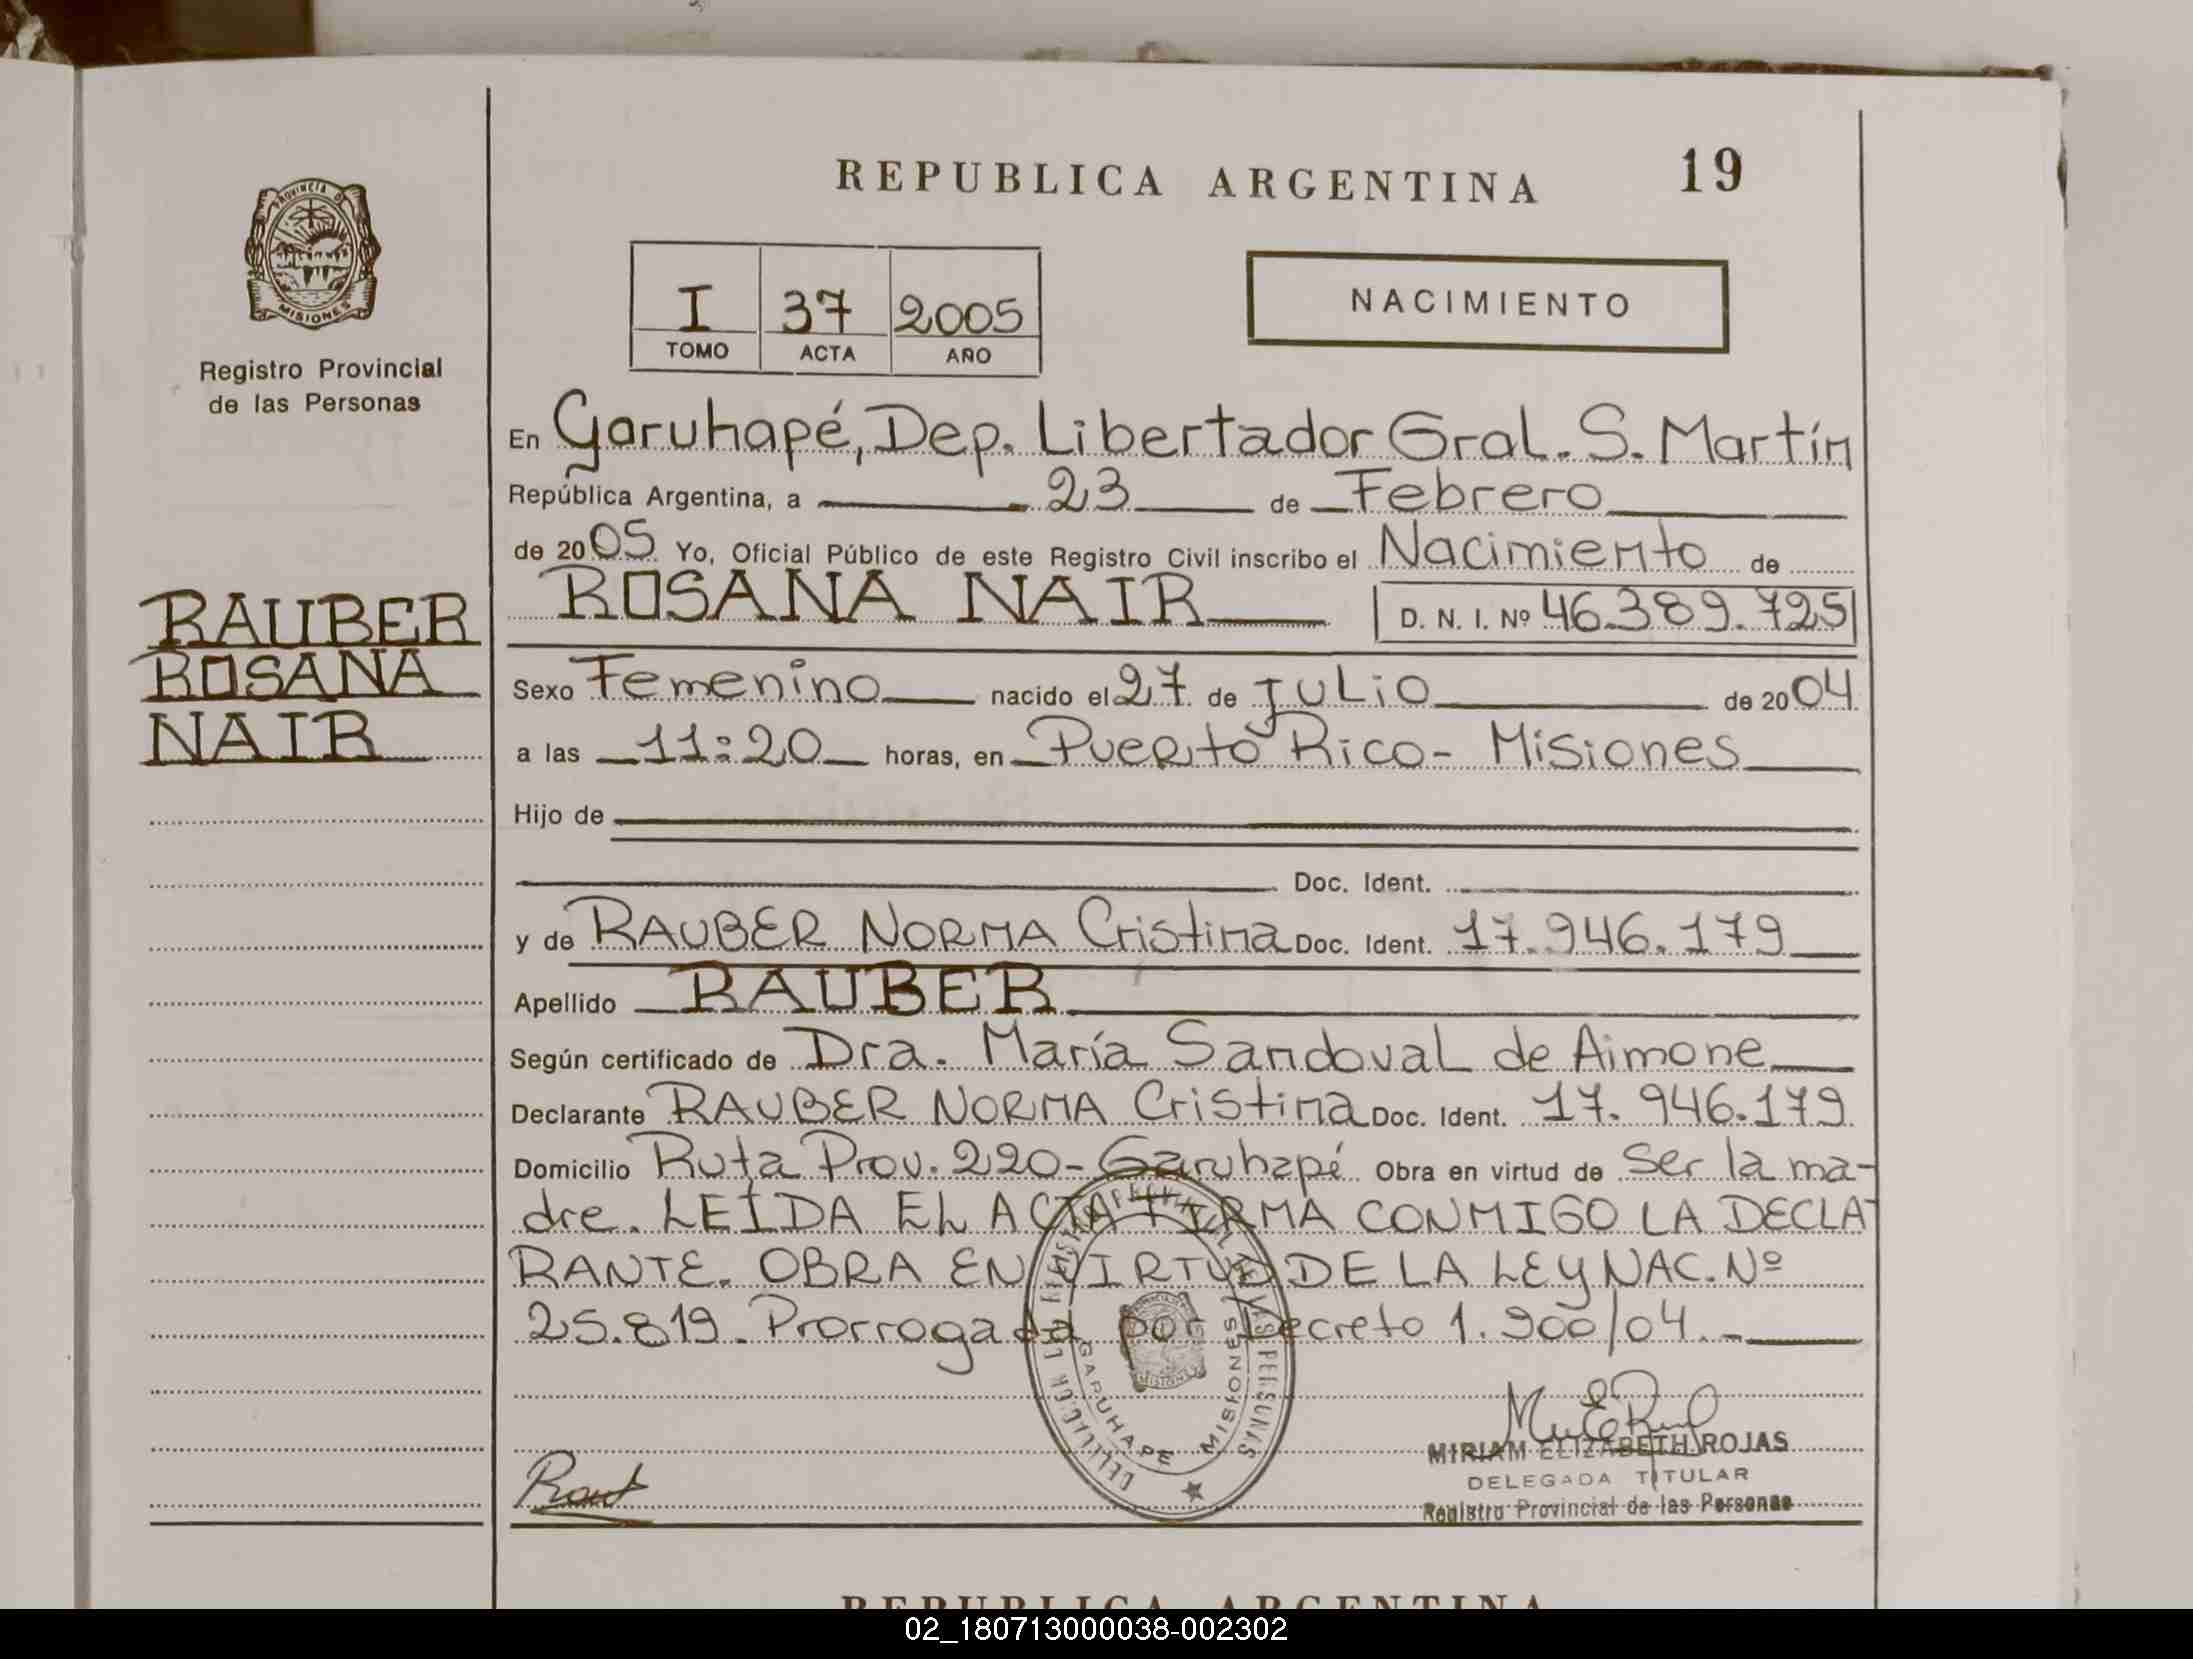 REPUBLICA ARGENTINA 19
PROVINCIA DE
MISIONES
Registro Provincial
de las Personas
I 37 2005
TOMO ACTA AÑO
NACIMIENTO
En Garuhapé, Dep. Libertador Gral. S. Martín
República Argentina, a 23 de Febrero
de 2005 Yo, Oficial Público de este Registro Civil inscribo el Nacimiento de
ROSANA NAIR D. N. I. Nº 46.389.725
RAUBER
ROSANA
NAIR
Sexo Femenino nacido el 27 de Julio de 2004
a las 11:20 horas, en Puerto Rico - Misiones
Hijo de
Doc. Ident.
y de RAUBER NORMA Cristina Doc. Ident. 17.946.179
Apellido RAUBER
Según certificado de Dra. María Sandoval de Aimone
Declarante RAUBER NORMA Cristina Doc. Ident. 17.946.179
Domicilio Ruta Prov. 220 - Garuhapé Obra en virtud de ser la ma-
dre. LEÍDA EL ACTA FIRMA CONMIGO LA DECLA-
RANTE. OBRA EN VIRTUD DE LA LEY NAC. Nº
25.819. Prorrogada por Decreto 1.900/04.-
GARUHAPE MISIONES
MIRIAM ELIZABETH ROJAS
DELEGADA TITULAR
Registro Provincial de las Personas
REPUBLICA ARGENTINA
02_180713000038-002302